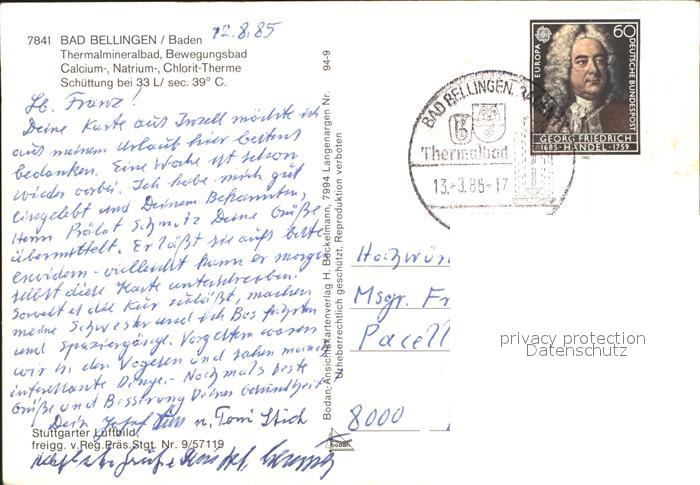 12.8.85
7841 BAD BELLINGEN / Baden
Thermalmineralbad, Bewegungsbad
Calcium-, Natrium-, Chlorit-Therme
Schüttung bei 33 L/ sec. 39° C.
Lb. Franz!
Deine Karte aus Inzell möchte ich
aus meinem Urlaub hier bestens
bedanken. Eine Woche ist schon
wieder vorbei. Ich habe mich gut
eingelebt und Deinem Bekannten,
Herrn Prälat Schmutz Deine Grüße
übermittelt. Er läßt sie aufs beste
erwidern - vielleicht kann er morgen
selbst diese Karte unterschreiben.
Soweit es die Kur zuläßt, machen
meine Schwester und ich Bus fahrten
und Spaziergänge. Vorgestern waren
wir in den Vogesen und sahen manch
interessante Dinge.- Nochmals beste
Grüße und Besserung Deiner Gesundheit
Dein Josef u. Toni Stich
Stuttgarter Luftbild,
freigg. v. Reg. Präs. Stgt. Nr. 9/57119
94-9
Bodan-Ansichtskartenverlag H. Böckelmann, 7994 Langenargen Nr.
Urheberrechtlich geschützt, Reproduktion verboten
BODAN
BAD BELLINGEN
Thermalbad
-17
EUROPA
60
DEUTSCHE BUNDESPOST
GEORG FRIEDRICH
1685 · HÄNDEL · 1759
1985
Hochwür
Msgr. Fr
Pacell
8000
privacy protection
Datenschutz